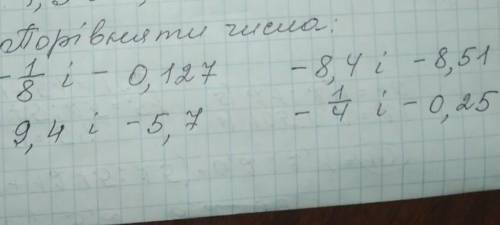 Порівняти числа:
-1/8 і - 0,127 -8,4 і -8,51
9,4 і -5,7 - 1/4 і - 0,25